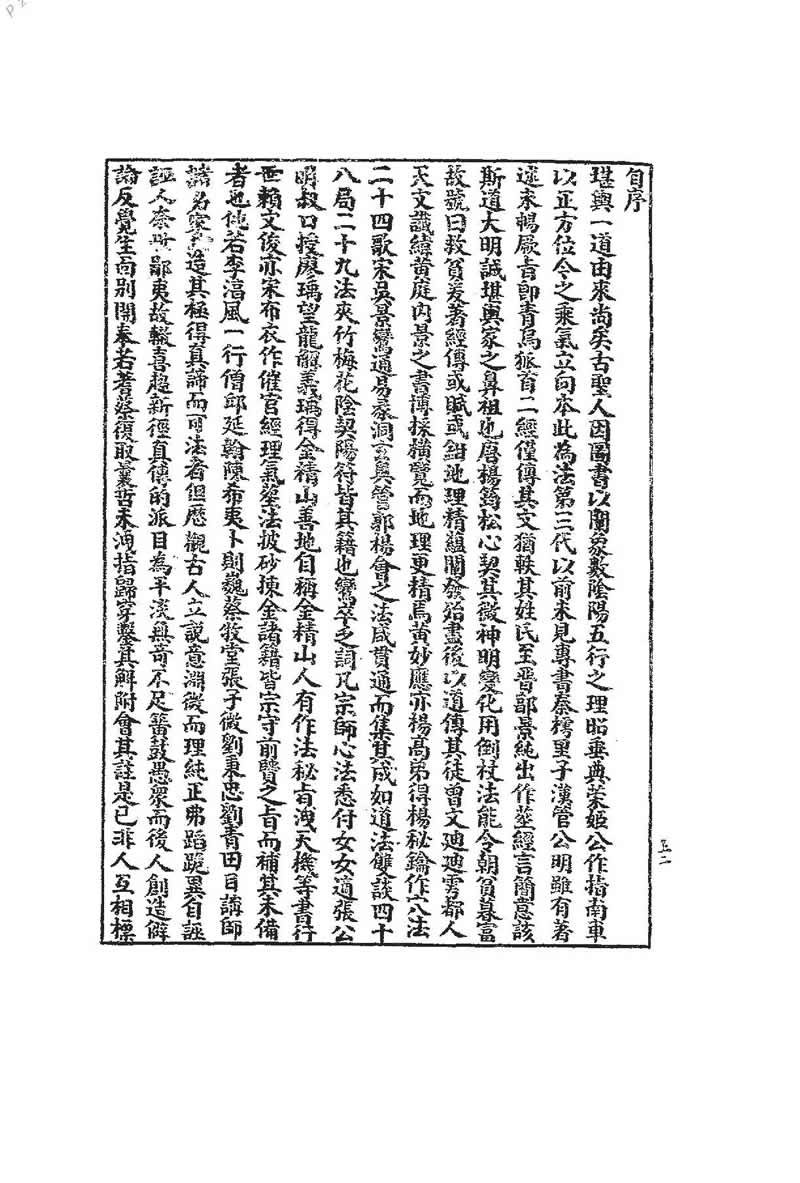 自序
堪輿一道由來尚矣古聖人因圖書以闡象數陰陽五行之理昭垂典策姬公作指南車
以正方位令之乘氣立向本此為法第三代以前未見專書秦樗里子漢管公明雖有著
述未暢厥旨即青烏狐首二經僅傳其文猶軼其姓氏至晋郭景純出作葬經言簡意該
斯道大明誠堪輿家之鼻祖也唐楊筠松心契其微神明變化用倒杖法能令朝貧暮富
故號曰救貧爰著經傳或賦或鉗地理精蘊闡發殆盡後以道傳其徒曾文廸廸雩都人
天文讖緯黄庭內景之書博採橫覽而地理更精焉黄妙應亦楊高弟得楊秘鑰作六法
二十四歌宋吳景鸞通易象洞玄奧管郭楊會之法咸貫通而集其成如道法雙談四十
八局二十九法夾竹梅花陰契陽符皆其籍也鸞卒之詞凡宗師心法悉付女女適張公
明叔口授廖瑀望龍解義瑀得金精山善地自稱金精山人有作法秘旨洩天機等書行
世賴文俊亦宋布衣作催官經理氣葬法披砂揀金諸籍皆宗守前賢之旨而補其未備
者也他若李淳風一行僧邱延翰陳希夷卜則巍蔡牧堂張子微劉秉忠劉青田目講師
諸名家造其極得真諦而可法者但歷觀古人立說意淵微而理純正弗蹈詭異自誣
誣人奈世鄙夷故轍喜趨新徑真傳的派目為平淡無奇不足簧鼓愚衆而後人創造僻
論反覺生面別開奉若蓍蔡復取曩哲未洩指歸穿鑿其解附會其註是已非人互相標
五二